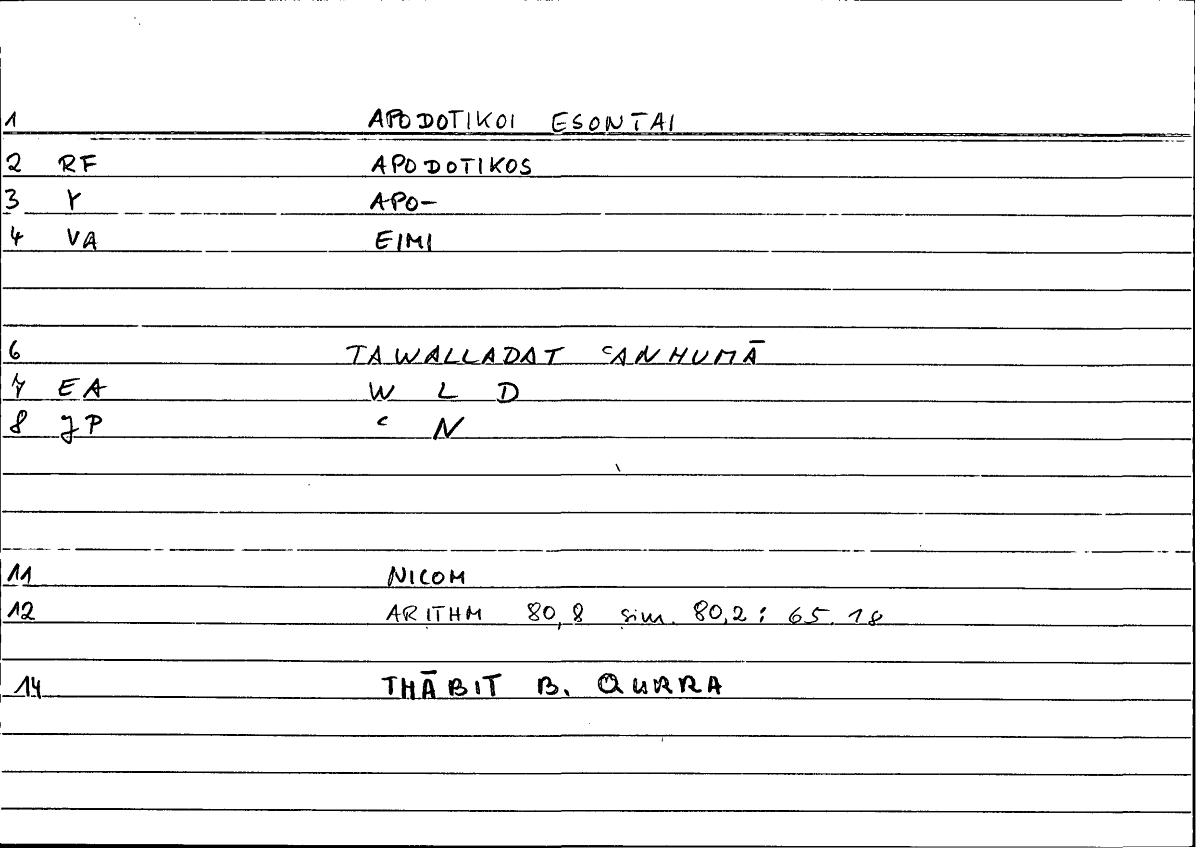 1 APODOTIKOI ESONTAI
2 RF APODOTIKOS
3 Y APO-
4 VA EIMI
6 TAWALLADAT ʿANHUMĀ
7 EA W L D
8 JP ʿ N
11 NICOM
12 ARITHM 80,8 sim. 80,2; 65.18
14 THĀBIT B. QURRA